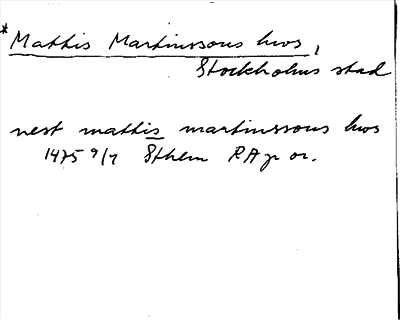 *Mattis Martinssons hws,
Stockholms stad
nest mattis martinssons hws
1475 9/7 Sthlm RA p or.